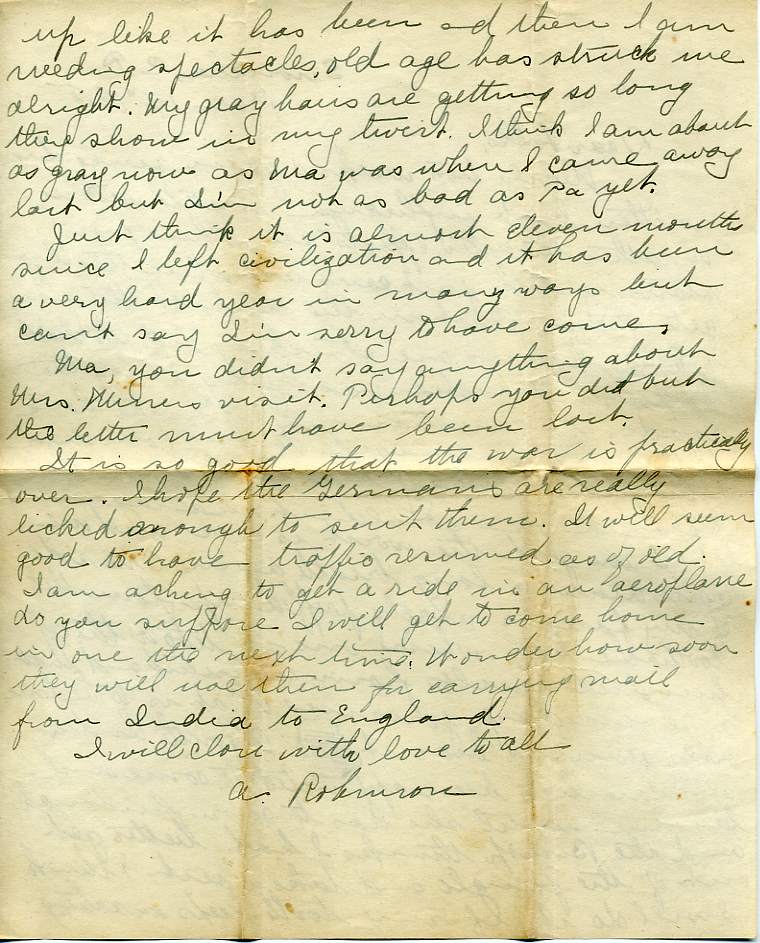 up like it has been and then I am
needing spectacles, old age has struck me
alright. My gray hairs are getting so long
they show in my twist. I think I am about
as gray now as Ma was when I came away
last but I'm not as bad as Pa yet.
Just think it is almost eleven months
since I left civilization and it has been
a very hard year in many ways but
can't say I'm sorry to have come.
Ma, you didn't say anything about
Mrs. Miners visit. Perhaps you did but
the letter must have been lost.
It is so good that the war is practically
over. I hope the Germans are really
licked enough to suit them. It will seem
good to have traffic resumed as of old.
I am aching to get a ride in an aeroplane
do you suppose I will get to come home
in one the next time. Wonder how soon
they will use them for carrying mail
from India to England.
I will close with love to all
A. Robinson